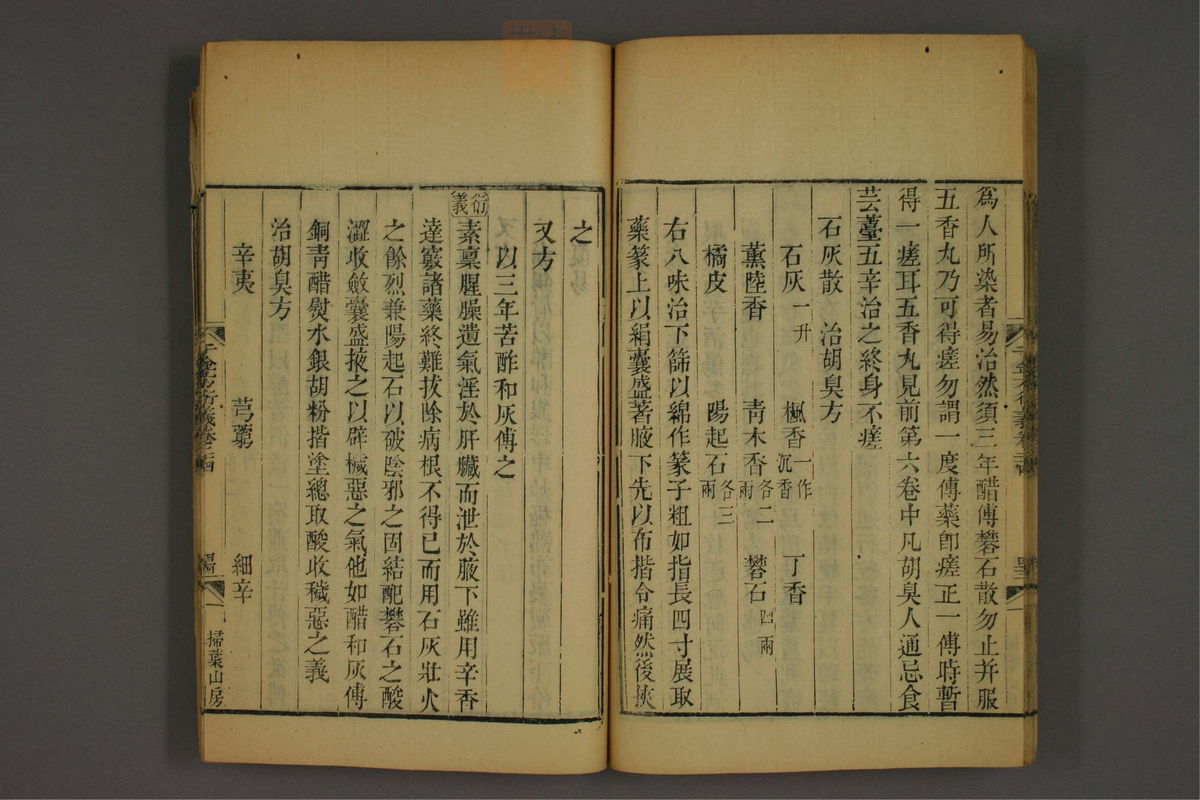 為人所染者易治然須三年醋傅礬石散勿止并服
五香丸乃可得瘥勿謂一度傅藥卽瘥正一傅時暫
得一瘥耳五香丸見前第六卷中凡胡臭人通忌食
芸薹五辛治之終身不瘥
石灰散 治胡臭方
石灰一升 楓香一作沉香 丁香
薰陸香 青木香各二兩 礬石四兩
橘皮 陽起石各三兩
右八味治下篩以綿作篆子粗如指長四寸展取
藥篆上以絹囊盛著腋下先以布揩令痛然後挾
之
又方
以三年苦酢和灰傅之
衍義
素稟腥臊遺氣淫於肝臟而泄於腋下雖用辛香
達竅諸藥終難拔除病根不得已而用石灰壯火
之餘烈兼陽起石以破陰邪之固結配礬石之酸
澀收斂囊盛掖之以辟穢惡之氣他如醋和灰傅
銅青醋熨水銀胡粉揩塗總取酸收穢惡之義
治胡臭方
辛夷 芎藭 細辛
千金方衍義卷二十四
掃葉山房